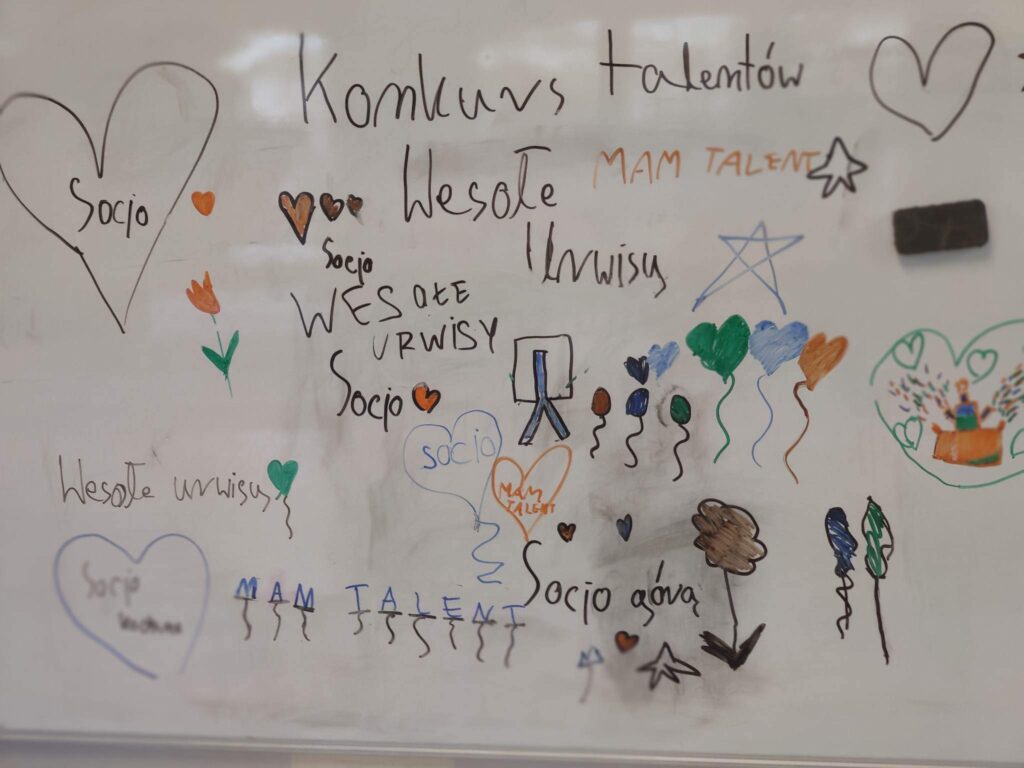 Konkurs talentów
Wesołe
MAM TALENT
Urwisy
Socjo
Socjo
WESOŁE
URWISY
Socjo
socjo
MAM
TALENT
Wesołe urwisy
Socjo
MAM TALENT
Socjo górą